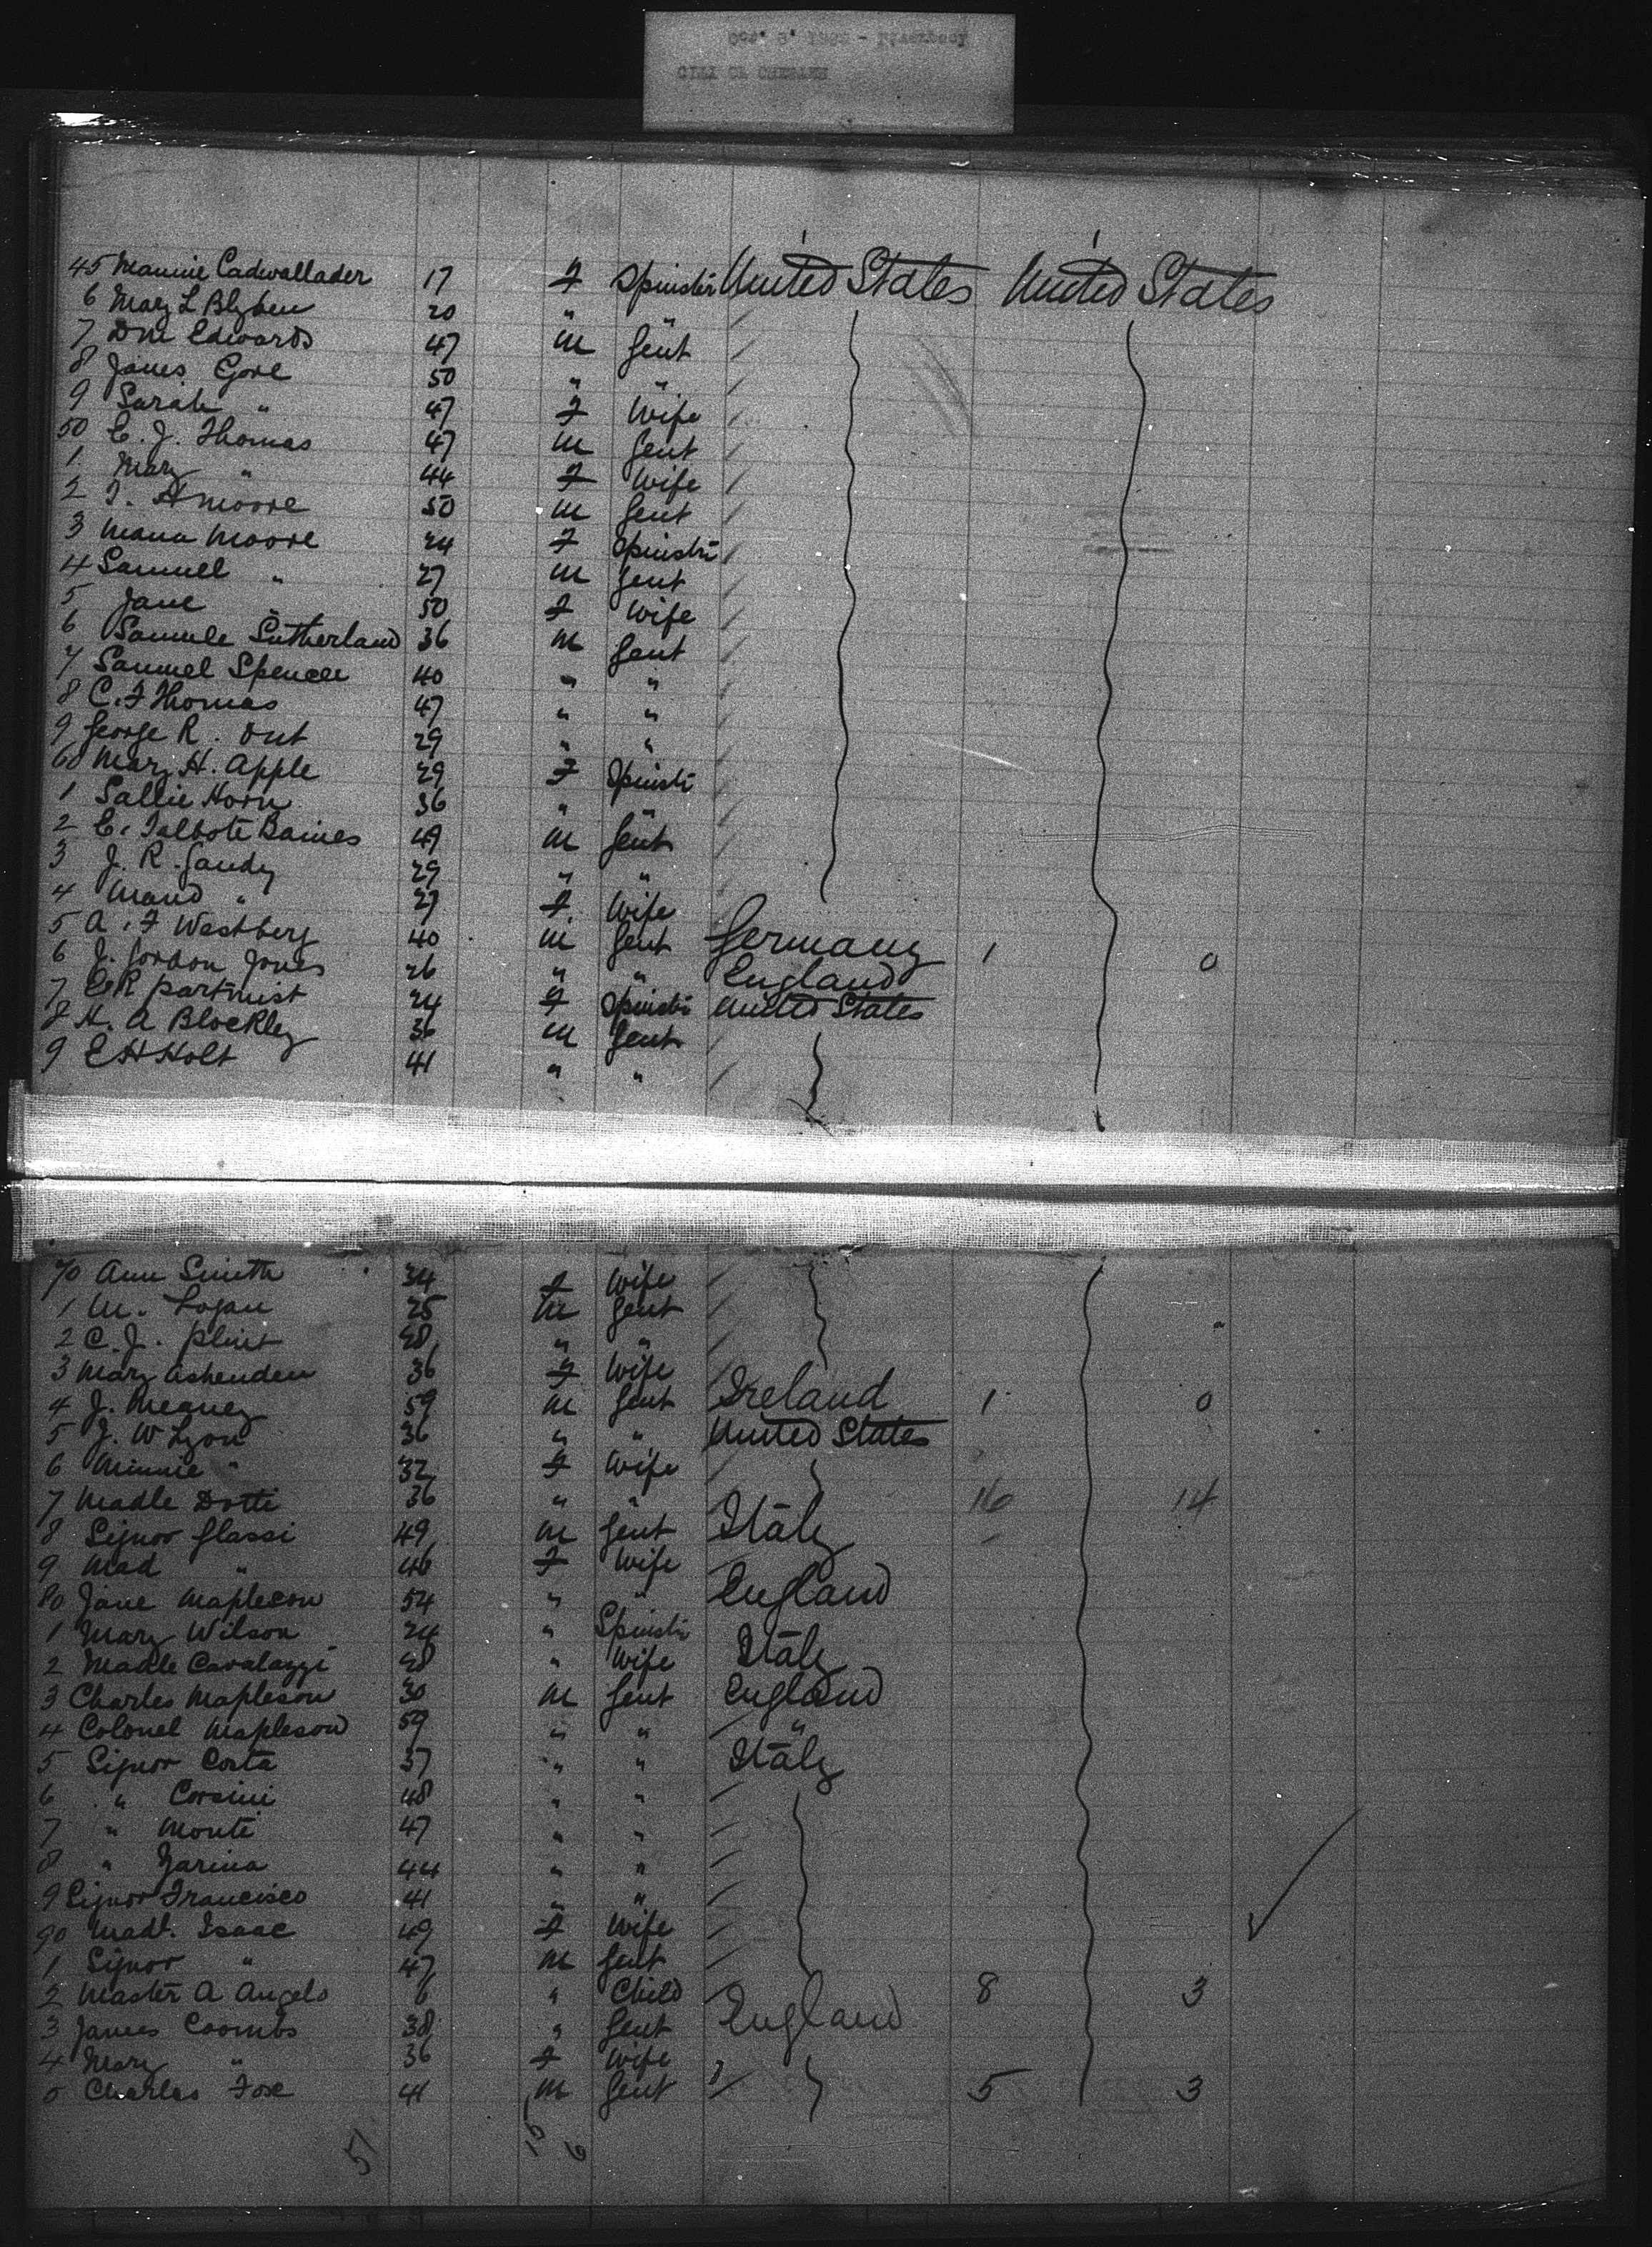 CITY OF CHESTER
45 Mamie Cadwallader 17 F Spinster United States United States
6 Mary L Blyben 20 " "
7 D M Edwards 47 M Gent
8 James Gore 50 " "
9 Sarah " 47 F Wife
50 C. J. Thomas 47 M Gent
1 Mary " 44 F Wife
2 T. H Moore 50 M Gent
3 Moore 24 F Spinstr
4 Samuel " 27 M Gent
5 Jane 50 F Wife
6 Samule Sutherland 36 M Gent
7 Samuel Spencer 40 " "
8 C. F Thomas 47 " "
9 George R. 29 " "
60 Mary H. Apple 29 F Spinstr
1 Sallie Horn 36 " "
2 E. Talbote Baines 49 M Gent
3 J. R. Gandy 29 " "
4 Maud " 27 F Wife
5 A. F Westberg 40 M Gent Germany 1 0
6 J. Gordon Jones 26 " " England
7 24 F Spinstr United States
8 H. A Blockley 36 M Gent
9 E H Holt 41 " "
70 Ann Smith 34 F Wife
1 M. Logan 25 M Gent
2 C. J. " "
3 Mary Ashenden 36 F Wife
4 J. Meaney 59 M Gent Ireland 1 0
5 J. W Lyon 36 " " United States
6 Minnie " 32 F Wife
7 Madle Dotti 36 " " 16 14
8 Signor Glassi 49 M Gent Italy
9 Mad " 46 F Wife
80 Jane Mapleson 54 " " England
1 Mary Wilson 24 " Spinstr
2 Madle Cavalazzi " Wife Italy
3 Charles Mapleson 30 M Gent England
4 Colonel Mapleson 59 " " "
5 Signor Costa 37 " " Italy
6 " Corsini 48 " "
7 " Monti 47 " "
8 " Farina 44 " "
9 Signor Francisco 41 " "
90 Madl. Isaac 49 F Wife
1 Signor " 47 M Gent
2 Master A Angelo 6 " Child 8 3
3 James Coombs 38 " Gent England
4 Mary " 36 F Wife
5 Charles Fox 41 M Gent 5 3
51